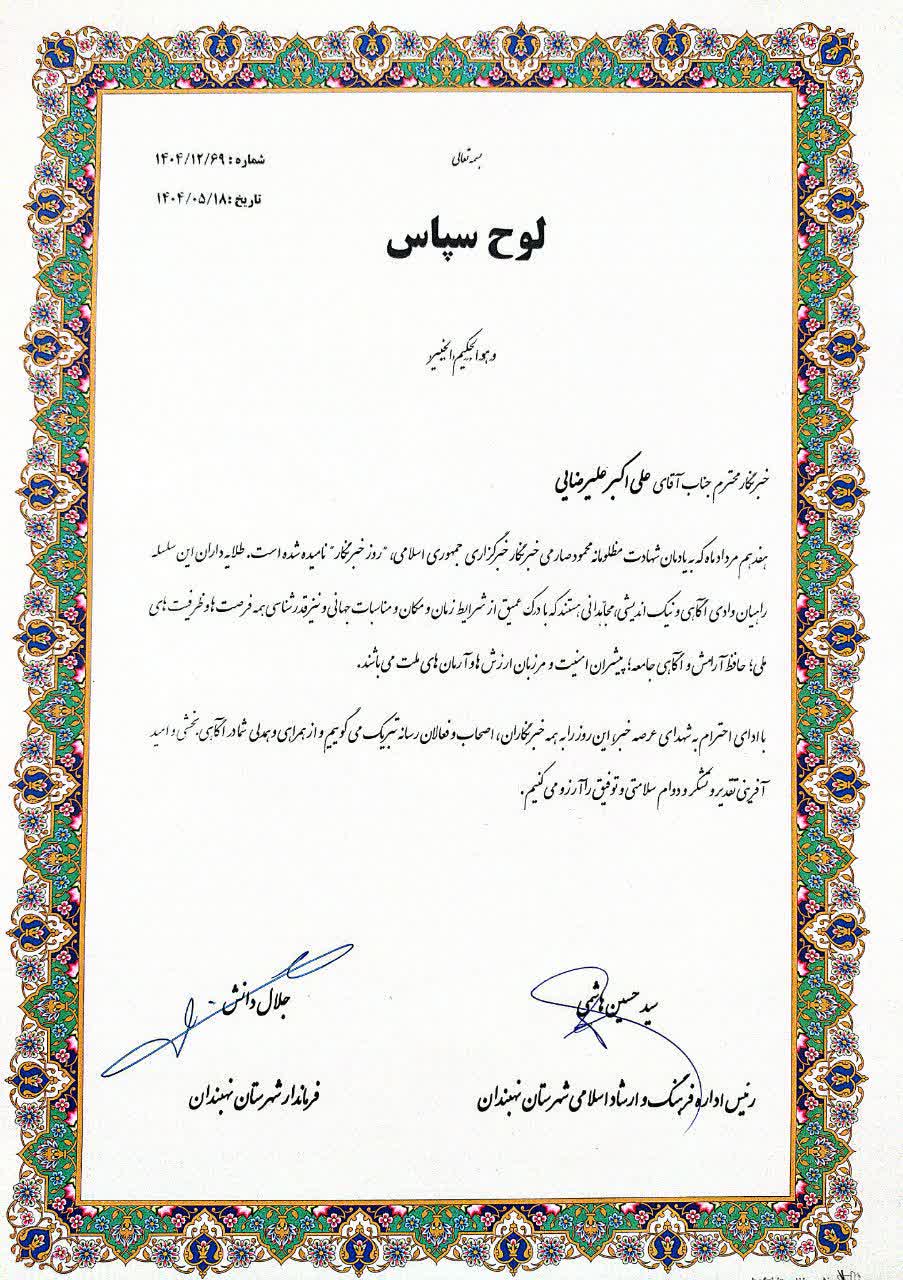 بسمه تعالی
شماره: ۱۴۰۴/۱۲/۶۹
تاریخ: ۱۴۰۴/۰۵/۱۸
لوح سپاس
و هو الحکیم الخبیر
خبرنگار محترم جناب آقای علی اکبر علیرضایی
هفدهم مرداد ماه که به یادمان شهادت مظلومانه محمود صارمی خبرنگار خبرگزاری جمهوری اسلامی، "روز خبرنگار" نامیده شده است. طلایه داران این سلسله
راهیان وادی آگاهی و نیک اندیشی، مجاهدانی هستند که با درک عمیق از شرایط زمان و مکان و مناسبات جهانی و نیز قدرشناسی همه فرصت ها و ظرفیت های
ملی؛ حافظ آرامش و آگاهی جامعه؛ پیشران امنیت و مرزبان ارزش ها و آرمان های ملت می باشند.
با ادای احترام به شهدای عرصه خبر، این روز را به همه خبرنگاران، اصحاب و فعالان رسانه تبریک می گوییم و از همراهی و همدلی شما در آگاهی بخشی و امید
آفرینی تقدیر و تشکر و دوام سلامتی و توفیق را آرزو می کنیم.
سید حسین هاشمی
جلال دانش
رئیس اداره فرهنگ و ارشاد اسلامی شهرستان نهبندان
فرماندار شهرستان نهبندان